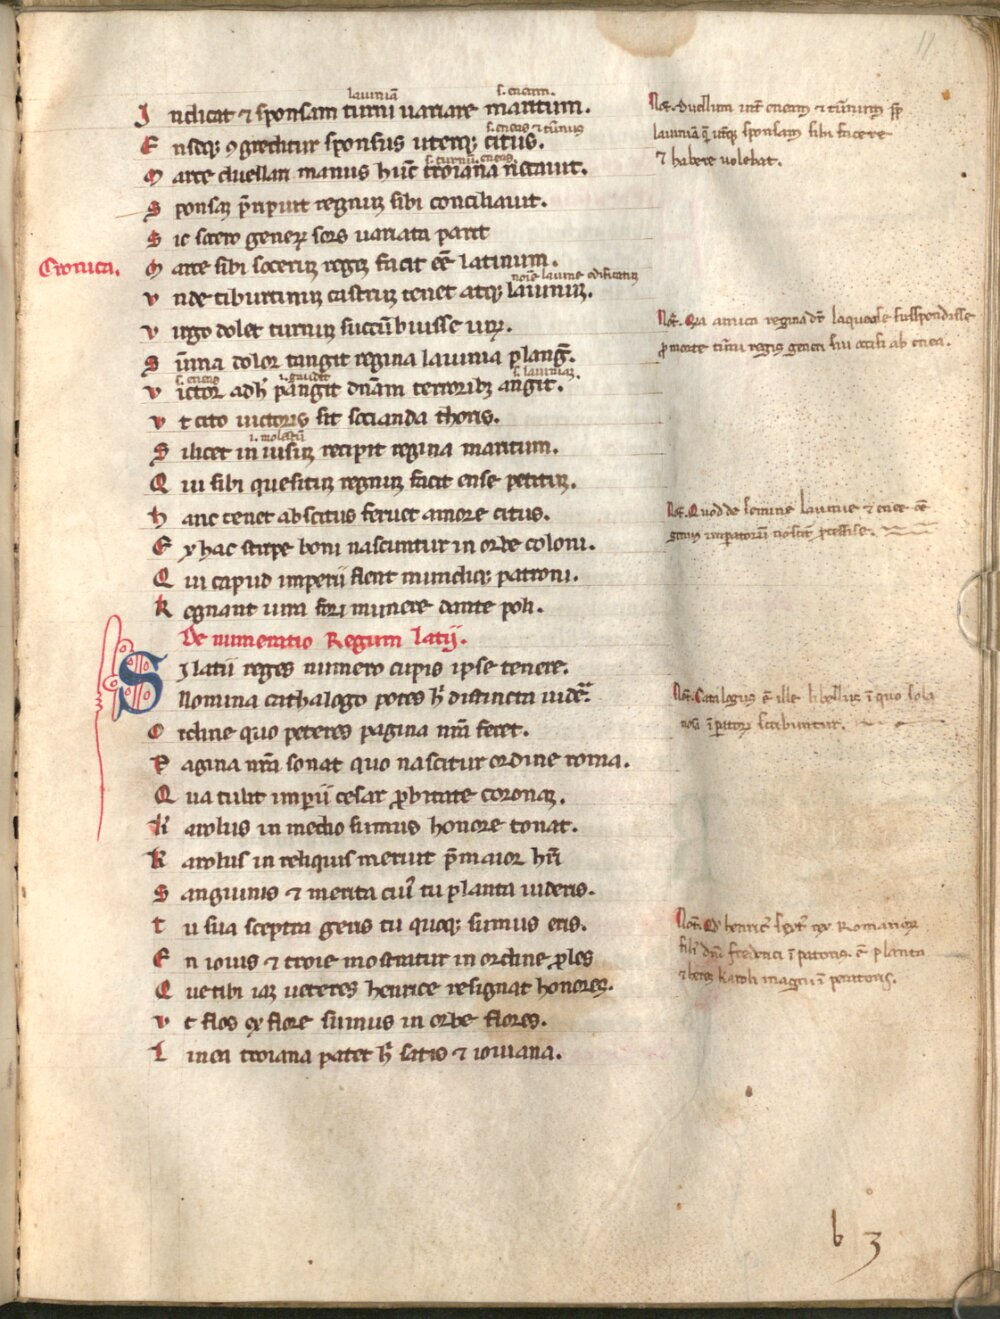 11
lauiniā s. eneam.
Indicat ⁊ sponsam turni uariare maritum.
s. eneas ⁊ t̄nus
Ensəq; ꝯgreditur sponsus uterq; citus.
s. turnū. eneas.
Marte duellari manus hūc troiana necauit.
Sponsaꝫ p̄ripuit regnuꝫ sibi conciliauit.
Sic socero generꝫ sors uariata parit
Cronica.
Marte sibi soceruꝫ regeꝫ facit eē latinum.
noīe lauinie edificatuꝫ
Vnde tiburtinuꝫ castruꝫ tenet atq; lauiniuꝫ.
Virgo dolet turnuꝫ succūbuisse uiꝝ.
Sūma dolor tangit regina lauinia plangit.
s. eneas i. gaudet s. lauiniaꝫ.
Victor adh' pangit dn̄am terroribꝫ angit.
Vt cito uictoris sit socianda thoris.
i. molestū
Silicet in uisuꝫ recipit regina maritum.
Qui sibi quesituꝫ regnuꝫ facit ense petituꝫ.
Hanc tenet abscitus feruet amore citus.
Ex hac stirpe boni nascuntur in orbe coloni.
Qui capud imperii fient mundiq; patroni.
Regnant uiui fori munere dante poli.
De numeratio Regum latij.
SI latii reges numero cupis ipse tenere.
Nomina cathalogo potes h' distincta uidere.
Ordine quo peteres pagina nr̄a feret.
Pagina nr̄a sonat quo nascitur ordine roma.
Qua tulit imp̄ii cesar ꝓbitate coronaꝫ.
Karolus in medio sumus honore tonat.
Karolus in reliquis metuit p̄maior hr̄i
Sanguinis ⁊ merita cui' tu planta uideris.
Tu sua sceptra geris tu quoq; sumus eris.
En iouis ⁊ troie mostratur in ordine ꝓles
Que tibi iaꝫ ueteres henrice resignat honores.
Vt flos ex flore sumus in orbe flores.
Linea troiana patet h' satis ⁊ iouiana.
Not. Duellum int' eneam ⁊ t̄num ꝓp̄
lauiniā q̄ ut'q; sponsam sibi facere
⁊ habere uolebat.
Not. Q̄ia amata regina dr̄ laqueo se suspendisse
ꝓ morte t̄ni regis generi sui occisi ab enea.
Not. Quod de semine lauinie ⁊ enee oē
genus imꝑatorū noscit' ꝓcessisse.
Not. Catalogus ē ille libellus ī quo sola
noīa īꝑatoꝝ scribuntur.
Not. Qd' henric' sext' rex Romanoꝝ
fili' dn̄i frederici īꝑatoris. ē planta
⁊ heres karoli magni īꝑeratoris.
b 3